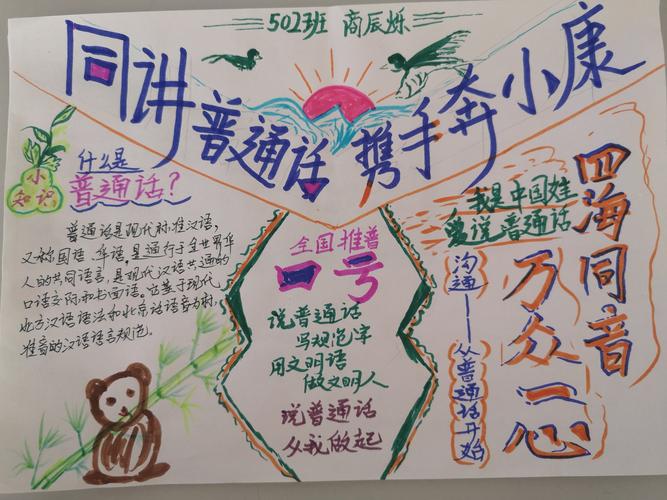 502班 商辰烁
同讲普通话 携手奔小康
小知识
什么是
普通话?
普通话是现代标准汉语,
又称国语、华语,是通行于全世界华
人的共同语言,是现代汉语共通的
口语交际和书面语。它基于现代
北方汉语语法和北京话语音为标
准音的汉语语言规范。
全国推普
口号
说普通话
写规范字
用文明语
做文明人
说普通话
从我做起
我是中国娃
爱说普通话
沟通——从普通话开始
四海同音
万众一心